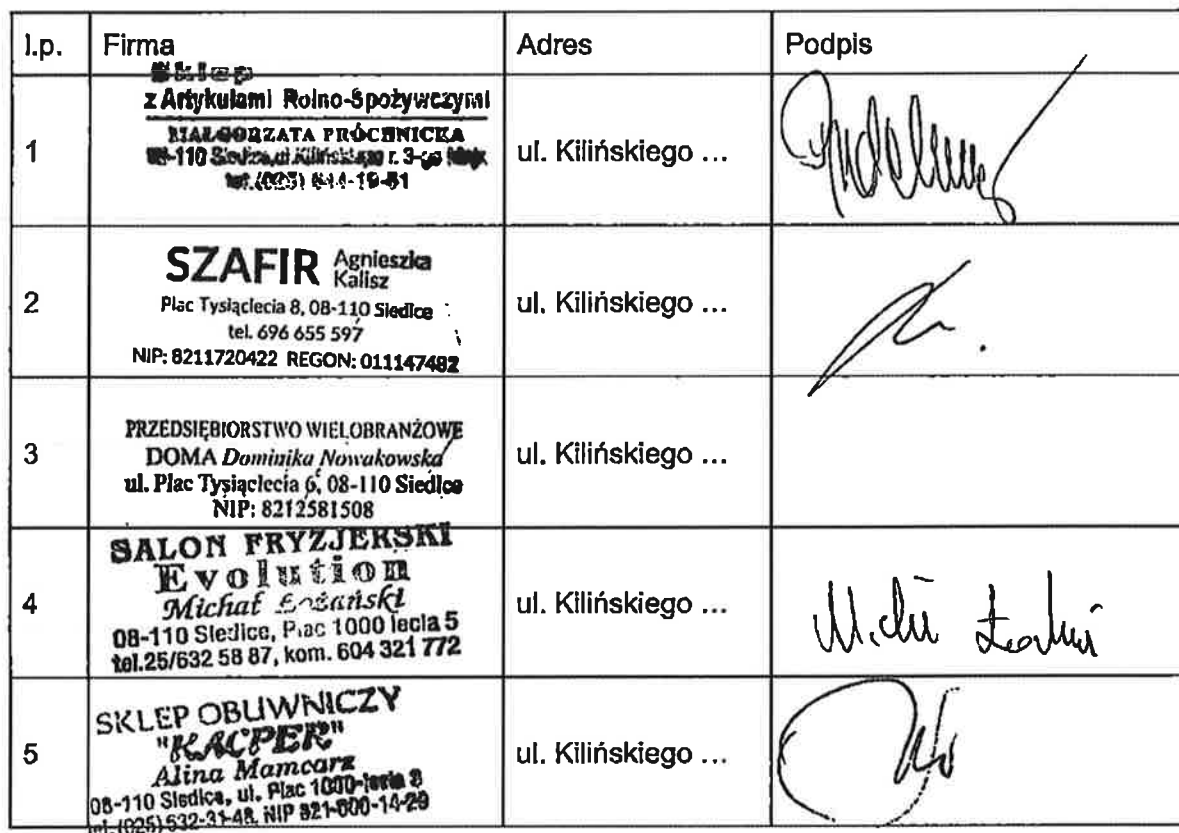 l.p. Firma Adres Podpis
1
Sklep
z Artykułami Rolno-Spożywczymi
MAŁGORZATA PRÓCHNICKA
08-110 Siedlce, ul. Kilińskiego r. 3-go Maja
tel. (025) 644-19-51
ul. Kilińskiego ...
2
SZAFIR Agnieszka
Kalisz
Plac Tysiąclecia 8, 08-110 Siedlce
tel. 696 655 597
NIP: 8211720422 REGON: 011147482
ul. Kilińskiego ...
3
PRZEDSIĘBIORSTWO WIELOBRANŻOWE
DOMA Dominika Nowakowska
ul. Plac Tysiąclecia 6, 08-110 Siedlce
NIP: 8212581508
ul. Kilińskiego ...
4
SALON FRYZJERSKI
Evolution
Michał
08-110 Siedlce, Plac 1000 lecia 5
tel.25/632 58 87, kom. 604 321 772
ul. Kilińskiego ...
5
SKLEP OBUWNICZY
"KACPER"
Alina Mamcarz
08-110 Siedlce, ul. Plac 1000-lecia 8
tel. (025) 632-31-48, NIP 821-000-14-29
ul. Kilińskiego ...